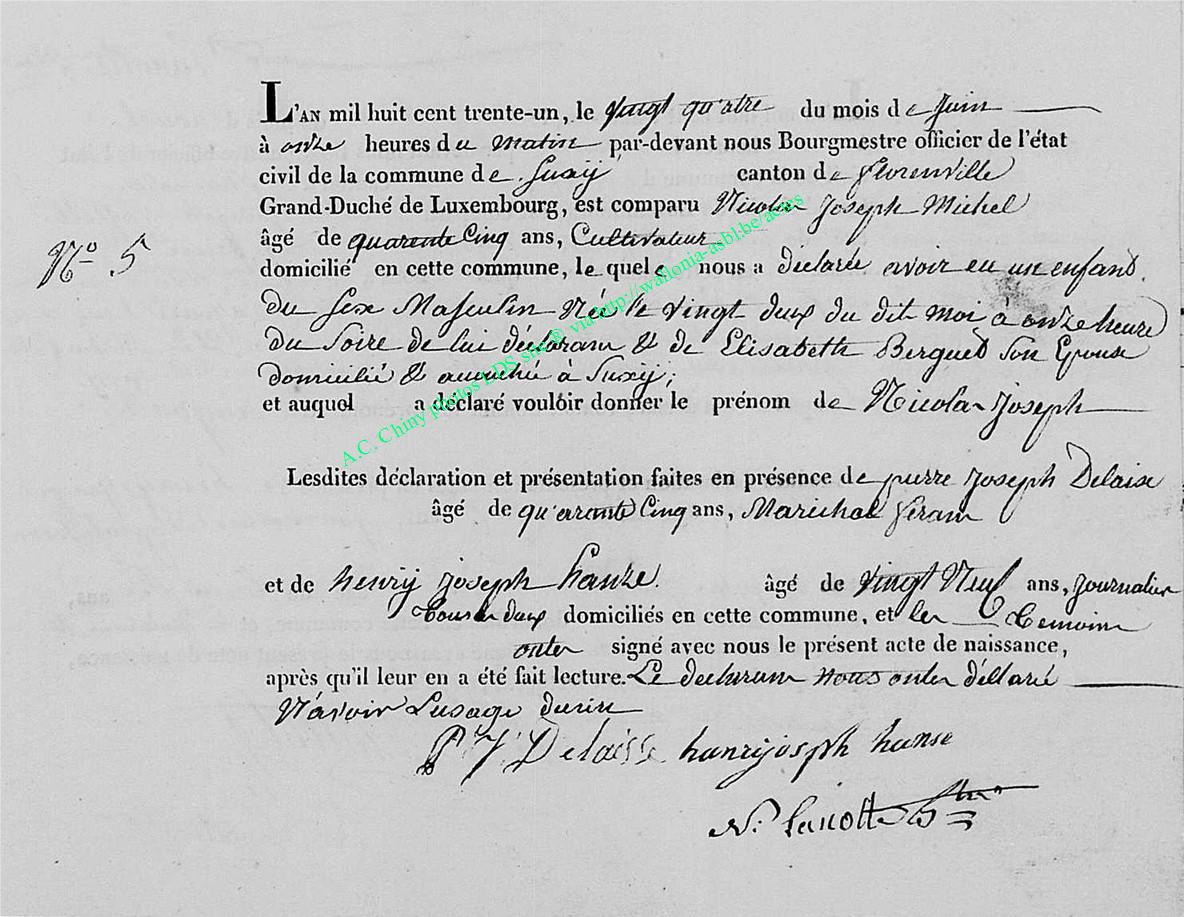 L'AN mil huit cent trente-un, le vingt qu'atre du mois de Juin
à onze heures du matin par-devant nous Bourgmestre officier de l'état
civil de la commune de Suxÿ canton de florenville
Grand-Duché de Luxembourg, est comparu Nicolas Joseph Michel
N° 5
âgé de quarente Cinq ans, Cultivateur
domicilié en cette commune, le quel nous a declaré avoir eu un enfant
du sex Masculin Née le vingt deux du dit moi à onze heure
du Soire de lui déclaram & de Elisabeth Berguet Son Epouse
domicilié & accouché à Suxÿ,
et auquel a déclaré vouloir donner le prénom de Nicolas Joseph
Lesdites déclaration et présentation faites en présence de pierre Joseph Delaise
âgé de qu'arante Cinq ans, Marichal feram
et de henry joseph hanse âgé de vingt Neuf ans, Journalier
tous les deux domiciliés en cette commune, et les temoins
onter signé avec nous le présent acte de naissance,
après qu'il leur en a été fait lecture. Le declaram nous onter déllaré
N'avoir Lusage
P J Delaisse hanrijosph hanse
N.
A.C. Chiny photos LDS site© via http://wallonia-asbl.be/actes